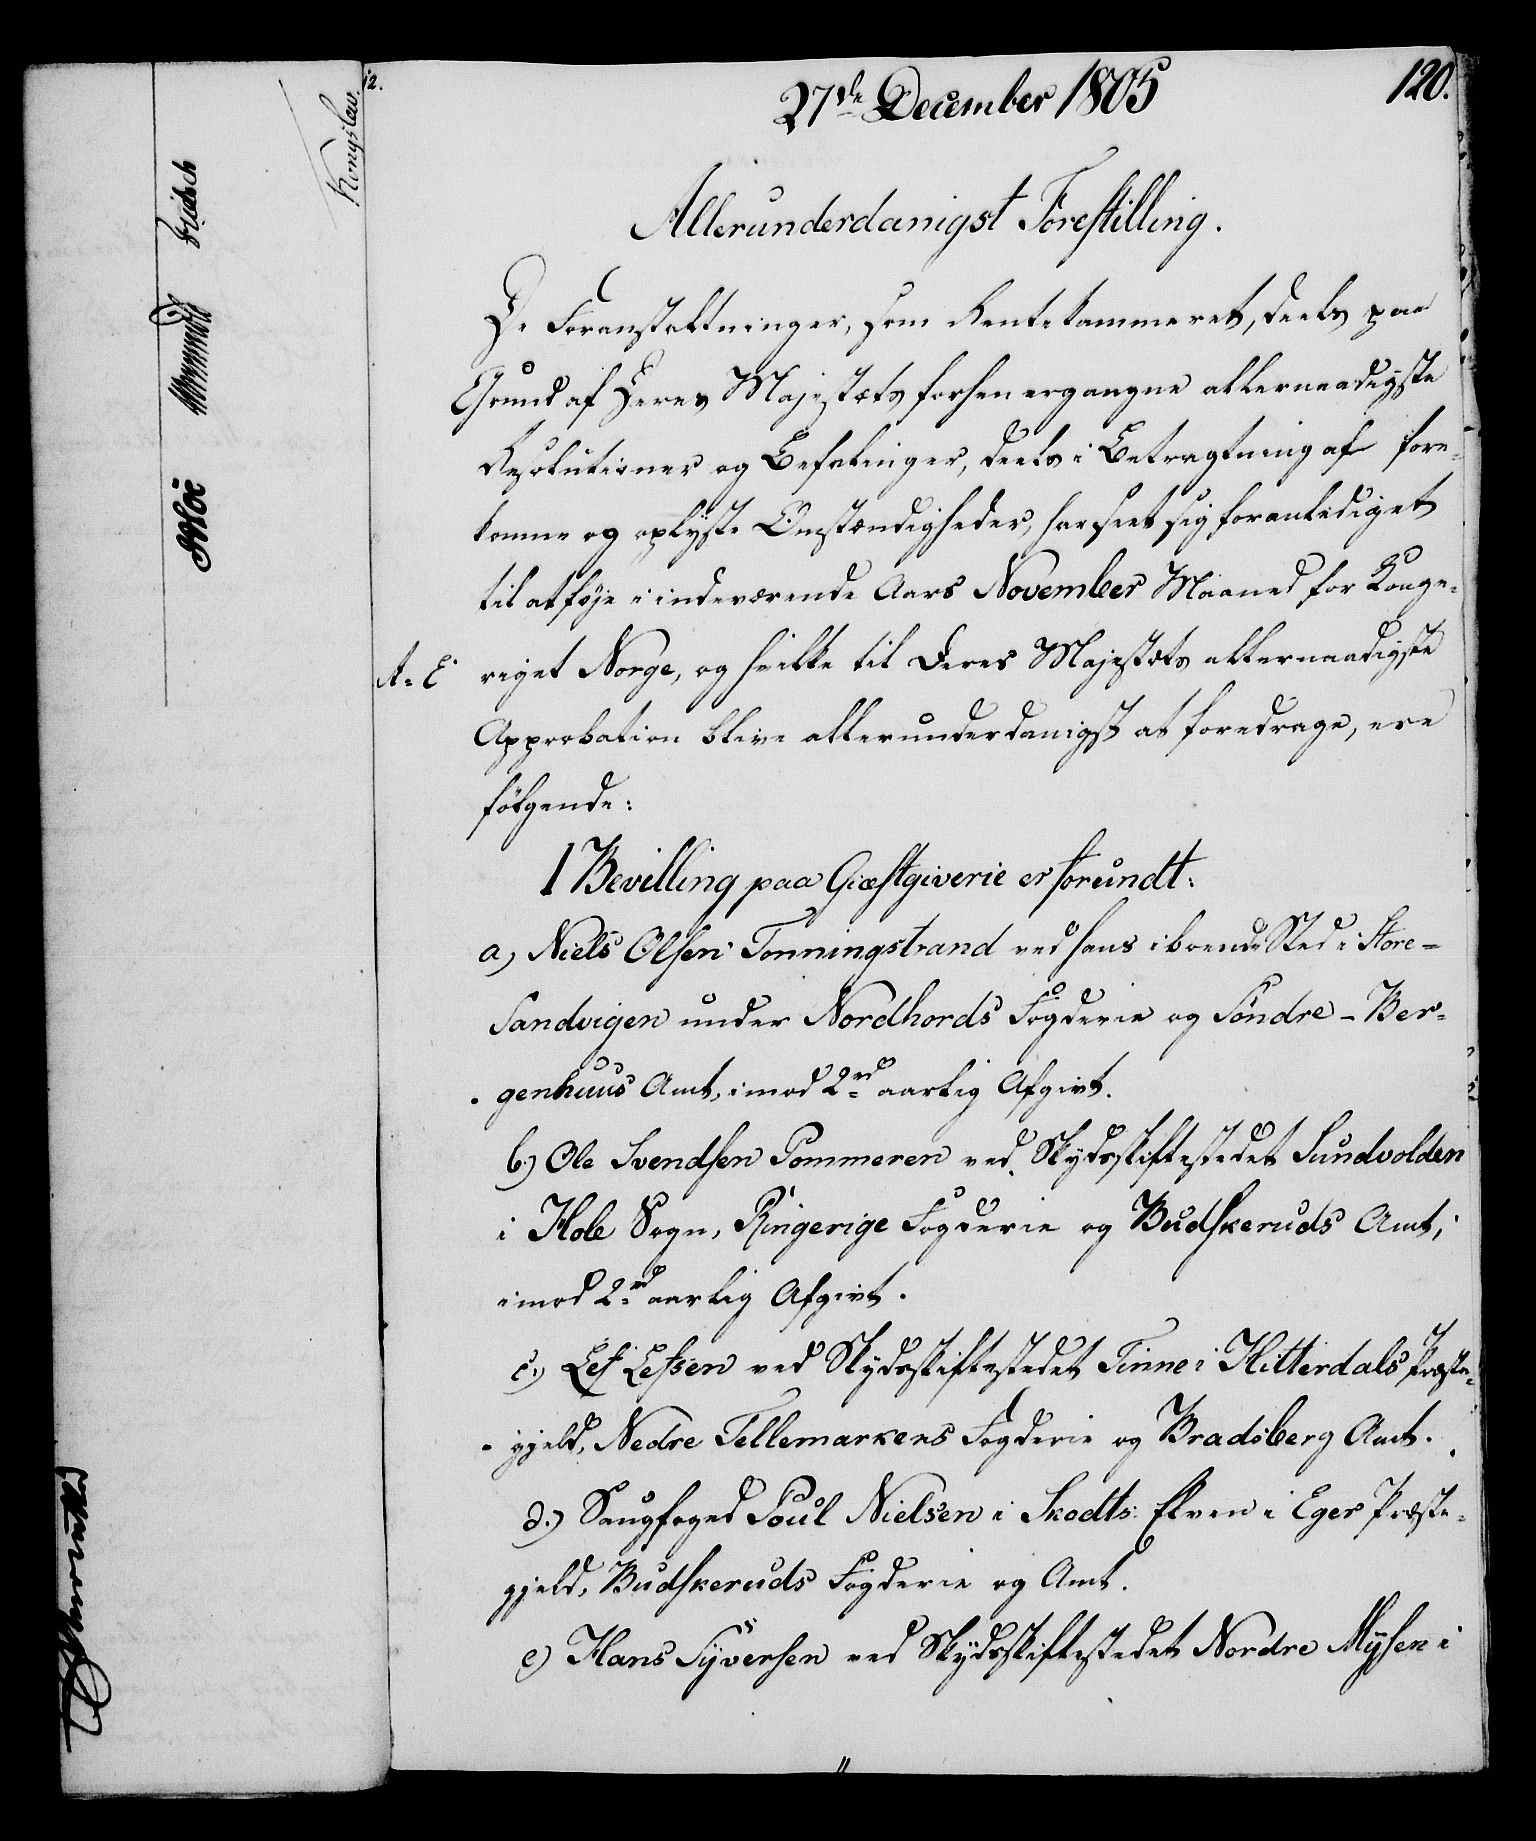 27de December 1805
120.
Allerunderdanigst Forestilling.
De Foranstaltninger, som Rentekammeret, deels paa
Grund af Deres Majestæts forhen ergangne allernaadigste
Resolutioner og Befalinger, deels i Betragtning af fore-
komne og oplyste Omstændigheder, har seet sig foranlediget
til at føje i indeværende Aars November Maaned for Konge-
A-E riget Norge, og hvilke til Deres Majestæts allernaadigste
Approbation blive allerunderdanigst at foredrage, ere
følgende:
1 Bevilling paa Giæstgiverie er forundt:
a, Niels Olsen Tonningstrand ved hans iboende Sted i Store-
Sandvigen under Nordhords Fogderie og Söndre-Ber-
genhuus Amt, imod 2rd aarlig Afgivt.
b.) Ole Svendsen Pommeren ved Skydsskiftestedet Sundvolden
i Hole Sogn, Ringerige Fogderie og Budskeruds Amt,
imod 2rd aarlig Afgivt.
c.) Lef Lefsen ved Skydsskiftestedet Tinne i Hitterdals Præste-
gjeld, Nedre Tellemarkens Fogderie og Bradsberg Amt.
d.) Saugfoged Poul Nielsen i Skodts Elven i Eger Præste-
gjeld, Budskeruds Fogderie og Amt.
e) Hans Syversen ved Skydsskiftestedet Nordre Mysen i
Kongslew.
Moe